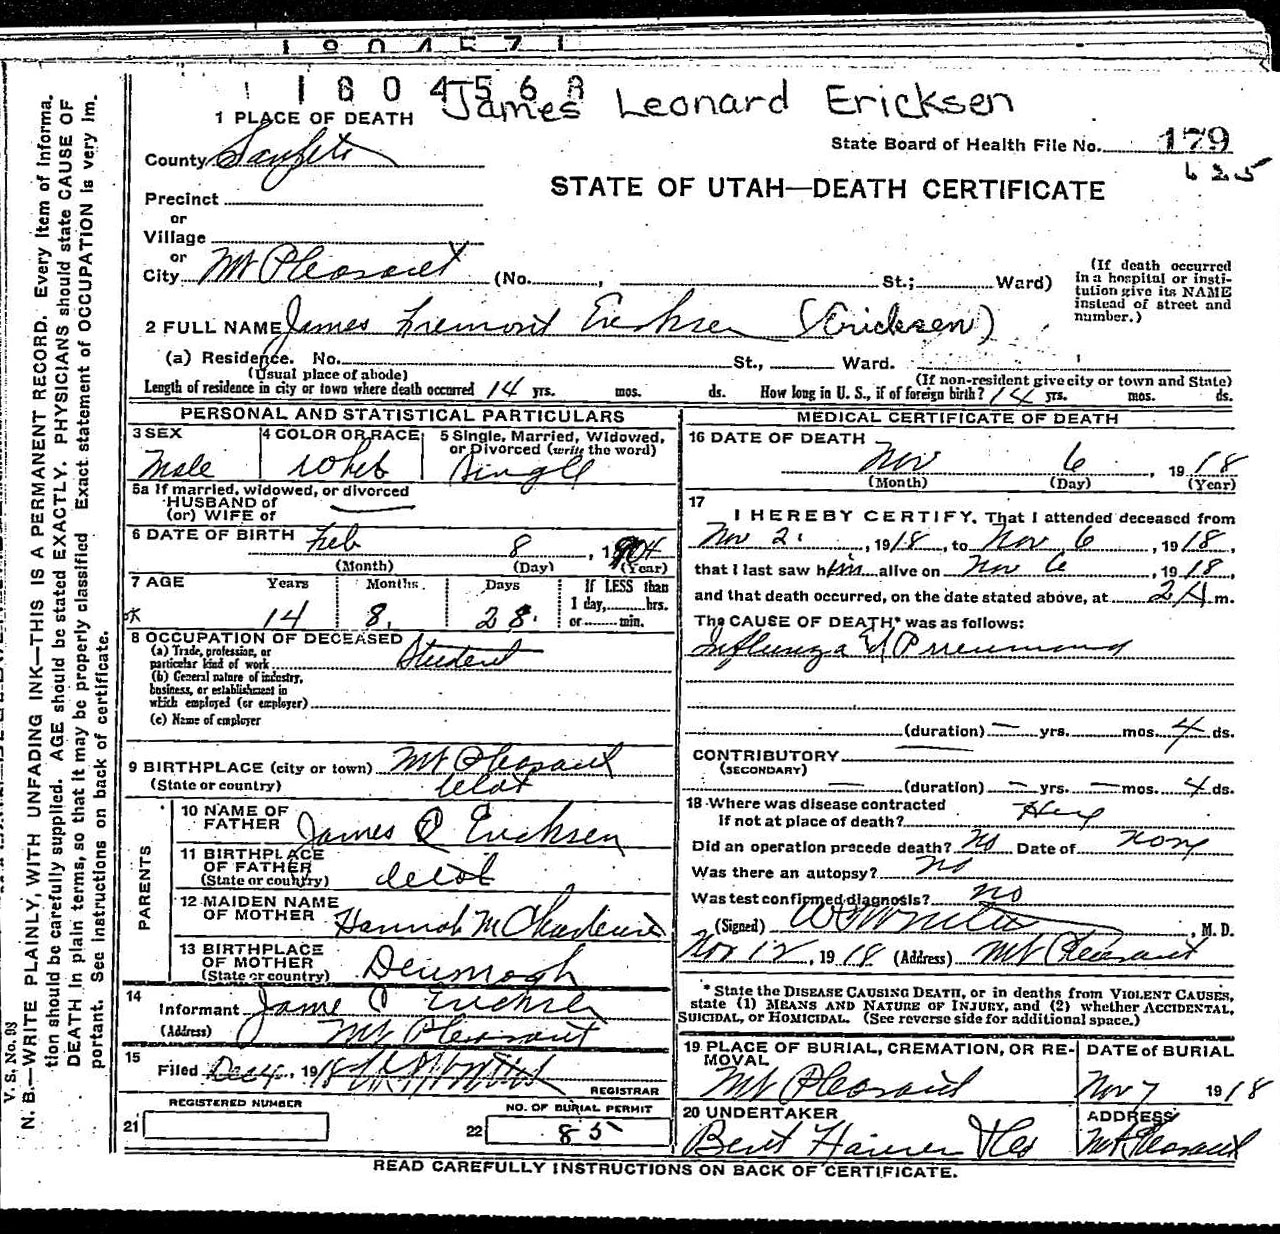 1804571
1804568
James Leonard Ericksen
1 PLACE OF DEATH
State Board of Health File No. 179
625
County Sanpete
STATE OF UTAH—DEATH CERTIFICATE
Precinct
or
Village
or
City Mt Pleasant (No. , St.; Ward)
(If death occurred
in a hospital or insti-
tution give its NAME
instead of street and
number.)
2 FULL NAME James Fremont Ericksen (Ericksen)
(a) Residence. No. St., Ward.
(Usual place of abode) (If non-resident give city or town and State)
Length of residence in city or town where death occurred 14 yrs. mos. ds. How long in U. S., if of foreign birth? 14 yrs. mos. ds.
PERSONAL AND STATISTICAL PARTICULARS
3 SEX 4 COLOR OR RACE 5 Single, Married, Widowed,
or Divorced (write the word)
Male White Single
5a If married, widowed, or divorced
HUSBAND of
(or) WIFE of
6 DATE OF BIRTH Feb 8, 1904
(Month) (Day) (Year)
7 AGE Years Months Days If LESS than
1 day, hrs.
14 8 28 or min.
8 OCCUPATION OF DECEASED
(a) Trade, profession, or
particular kind of work Student
(b) General nature of industry,
business, or establishment in
which employed (or employer)
(c) Name of employer
9 BIRTHPLACE (city or town) Mt Pleasant
(State or country) Utah
PARENTS
10 NAME OF
FATHER James C Ericksen
11 BIRTHPLACE
OF FATHER
(State or country) Utah
12 MAIDEN NAME
OF MOTHER Hannah M
13 BIRTHPLACE
OF MOTHER
(State or country) Denmark
14
Informant James C Ericksen
(Address) Mt Pleasant
15
Filed Dec 4, 1918
REGISTRAR
REGISTERED NUMBER NO. OF BURIAL PERMIT
21 22 85
MEDICAL CERTIFICATE OF DEATH
16 DATE OF DEATH
Nov 6, 1918
(Month) (Day) (Year)
17
I HEREBY CERTIFY, That I attended deceased from
Nov 2, 1918, to Nov 6, 1918,
that I last saw him alive on Nov 6, 1918,
and that death occurred, on the date stated above, at 2 A m.
The CAUSE OF DEATH* was as follows:
Influenza & Pneumonia
(duration) — yrs. — mos. 4 ds.
CONTRIBUTORY
(SECONDARY)
— (duration) — yrs. — mos. 4 ds.
18 Where was disease contracted
If not at place of death? Here
Did an operation precede death? No Date of none
Was there an autopsy? No
Was test confirmed diagnosis? no
(Signed) , M. D.
Nov 12, 1918 (Address) Mt Pleasant
* State the DISEASE CAUSING DEATH, or in deaths from VIOLENT CAUSES,
state (1) MEANS AND NATURE OF INJURY, and (2) whether ACCIDENTAL,
SUICIDAL, or HOMICIDAL. (See reverse side for additional space.)
19 PLACE OF BURIAL, CREMATION, OR RE- DATE of BURIAL
MOVAL
Mt Pleasant Nov 7 1918
20 UNDERTAKER ADDRESS
Bent Hansen & Co Mt Pleasant
READ CAREFULLY INSTRUCTIONS ON BACK OF CERTIFICATE.
V. S. No. 98
N. B.—WRITE PLAINLY, WITH UNFADING INK—THIS IS A PERMANENT RECORD. Every Item of Informa-
tion should be carefully supplied. AGE should be stated EXACTLY. PHYSICIANS should state CAUSE OF
DEATH in plain terms, so that it may be properly classified. Exact statement of OCCUPATION is very im-
portant. See instructions on back of certificate.